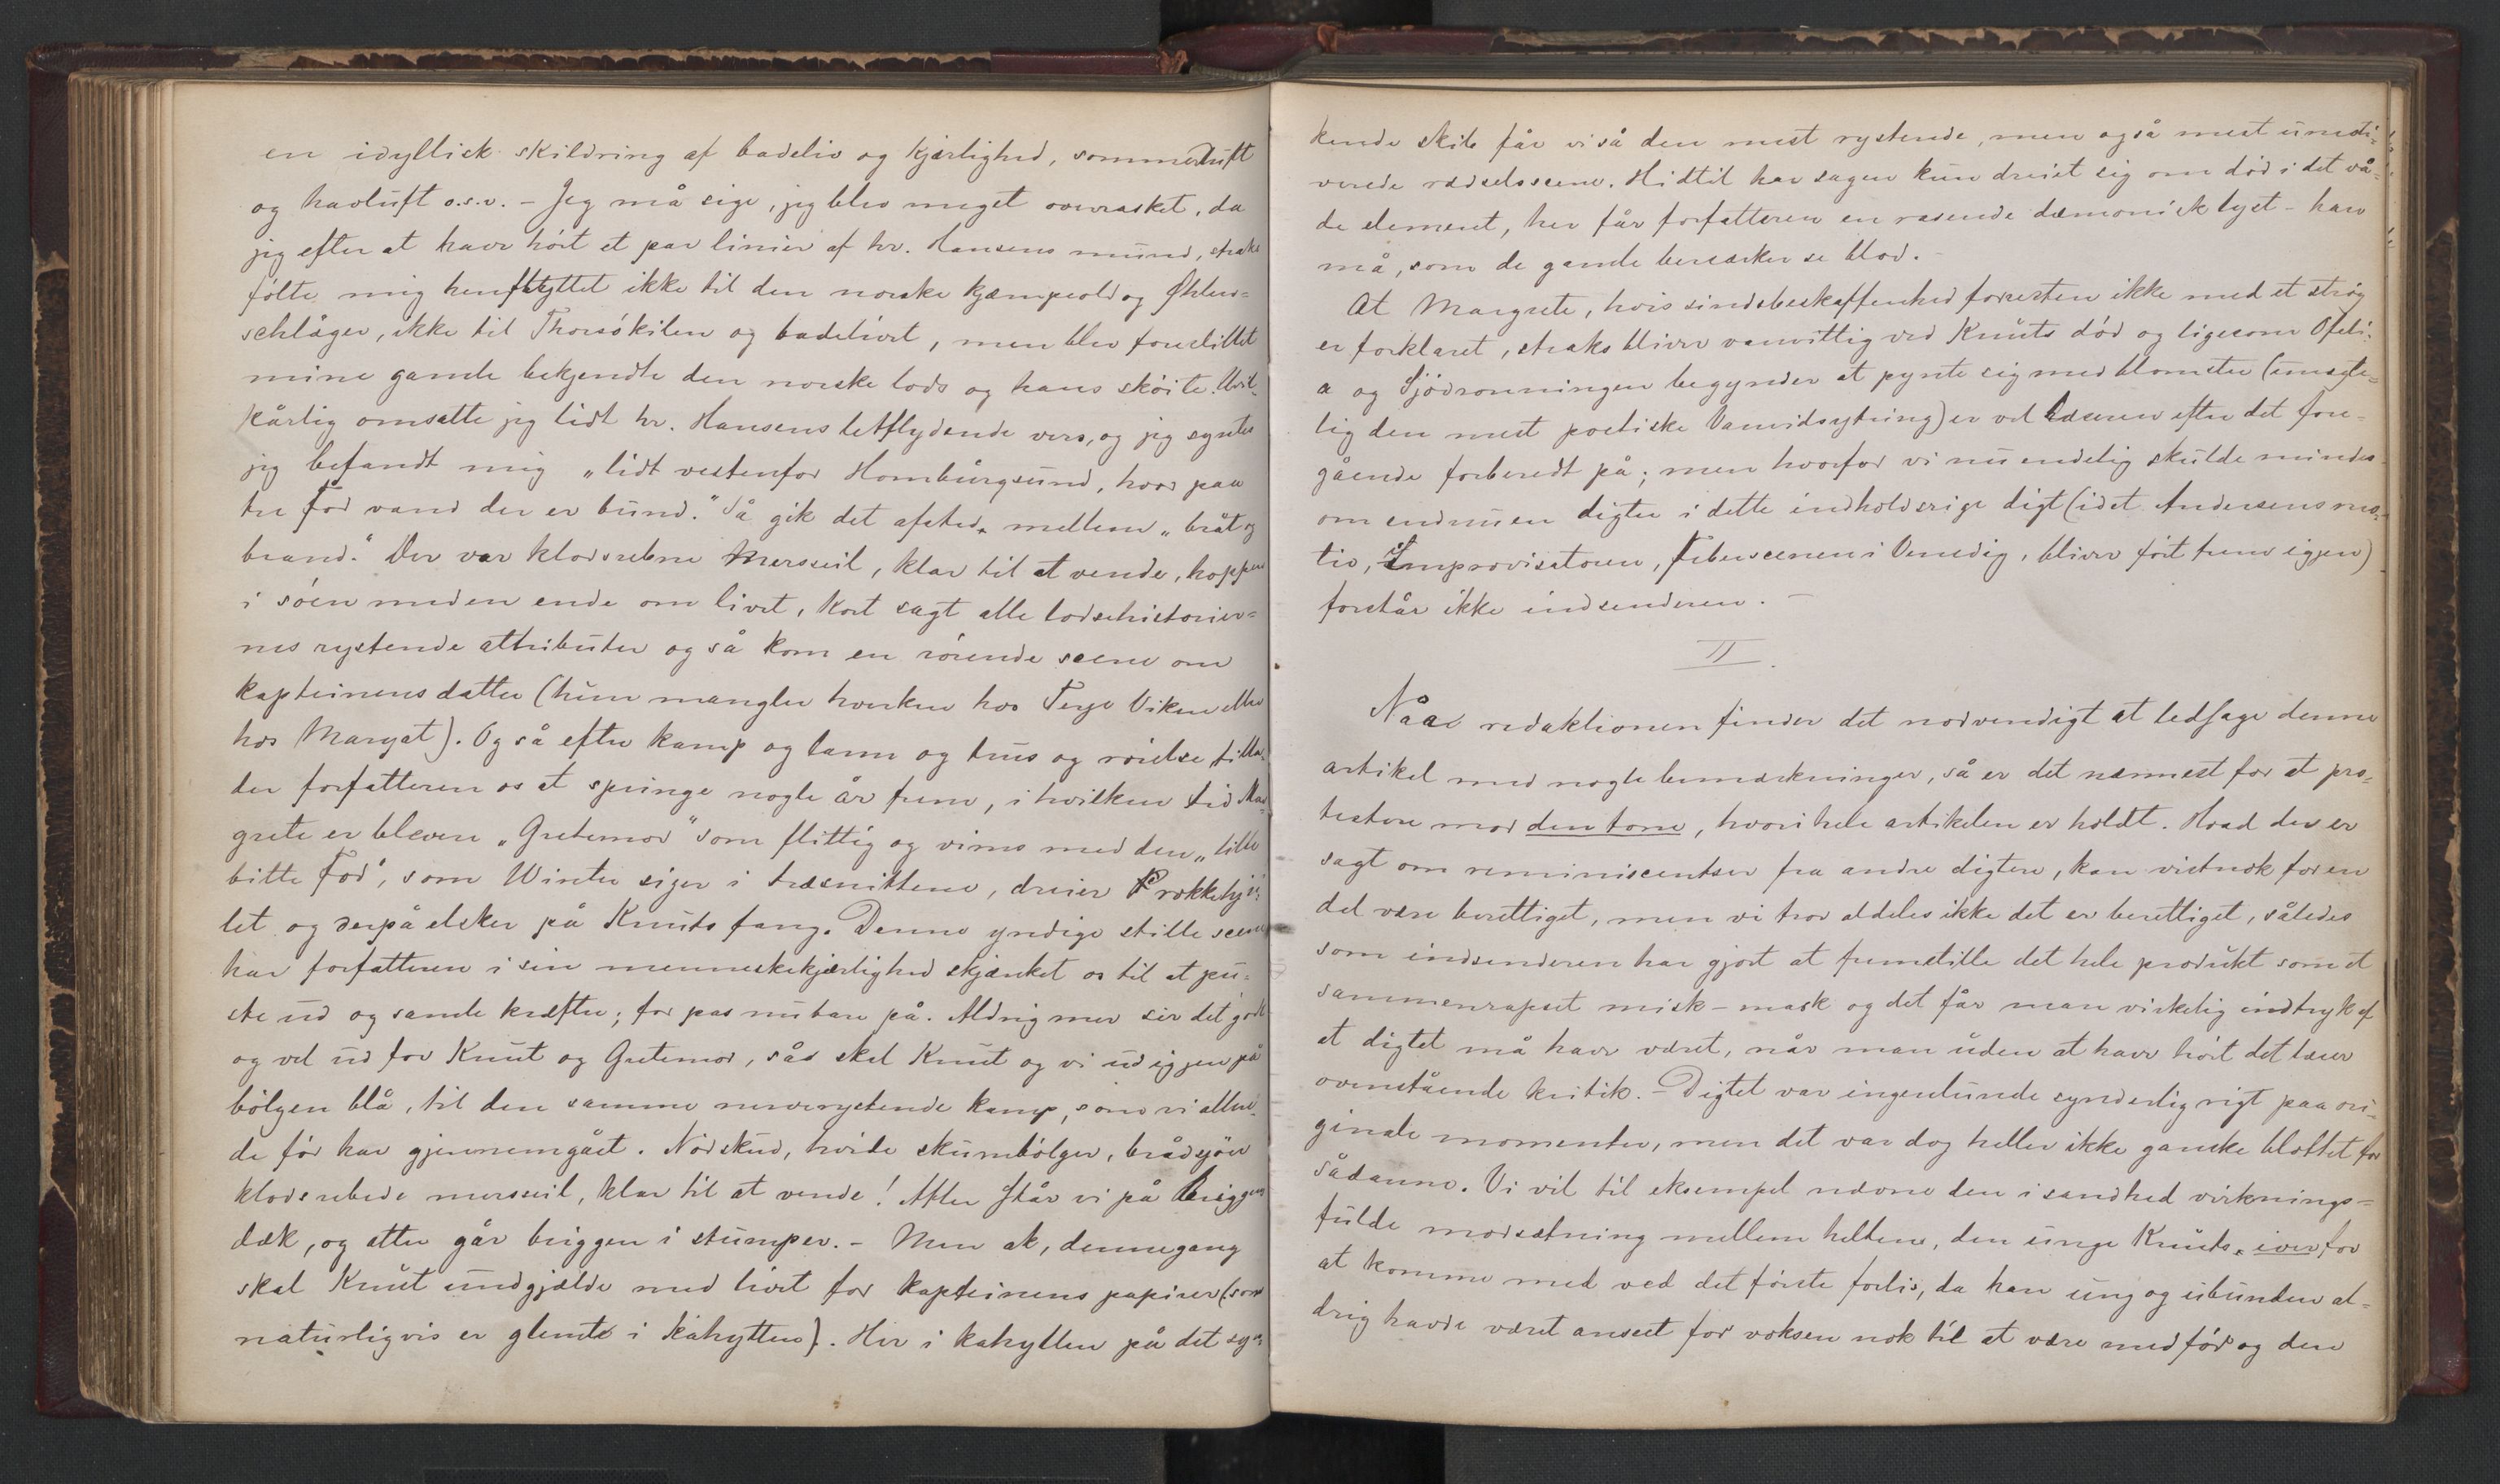 en idyllisk skildring af badeliv og kjærlighed, sommerduft
og havluft o.s.v. – Jeg må sige, jeg blev meget overrasket, da
jeg efter at have hört et par linier af hr. Hansens mund, straks
fölte mig henflyttet ikke til den norske kjæmpeold og Øhlen-
schläger, ikke til Thorsökilen og badelivet, men blev forestillet
mine gamle bekjendte den norske lods og hans sköite. Uvil-
kårlig omsatte jeg lidt hr. Hansens letflydende vers, og jeg syntes
jeg befandt mig „lidt vestenfor Homburgsund, hvor paa
tre fod vand der er bund.” Så gik det afsted mellem „bråt og
brand.” Der var klodsrebne Mersseil, klar til at vende, hoppen
i söen med en ende om livet, kort sagt alle lodsehistorier-
nes rystende attributer og så kom en rörende scene om
kapteinens datter (hun mangler hverken hos Terje Viken eller
hos Maryat). Og så efter kamp og larm og brus og rörelse tilla-
der forfatteren os at springe nogle år frem, i hvilken tid Mar-
grete er bleven „Gretemor” som flittig og vims med den „lille
bitte fod”, som Winter siger i træsnittene, dreier Rokkehju-
let og derpå elsker på Knuts fang. Denne yndige stille scene
har forfatteren i sin menneskekjærlighed skjænket os til at pu-
ste ud og samle kræfter; for pas nu bare på. Aldrig mer ser det godt
og vel ud for Knut og Gretemor, så skal Knut og vi ud igjen på
bölgen blå, til den samme nerverystende kamp, som vi allere-
de för har gjennemgået. Nödskud, hvide skumbölger, brådsjöer
klodsrebede mersseil, klar til at vende! Atter står vi på Briggens
dæk, og atter går briggen i stumper. – Men ak, dennegang
skal Knut undgjælde med livet for kapteinens papirer (som
naturligvis er glemte i kahytten). Her i kahytten på det syn-
kende skib får vi så den mest rystende, men også mest umoti-
verede rædselsscene. Hidtil har sagen kun dreiet sig om död i det vå-
de element, her får forfatteren en rasende dæmonisk lyst – han
må, som de gamle berserker se blod. –
At Margrete, hvis sindsbeskaffenhed foresten ikke med et strög
er forklaret, straks bliver vanvittig ved Knuts död og ligesom Ofeli-
a og Sjödronningen begynder at pynte sig med blomster (unægte-
lig den mest poetiske Vanvidsytring) er vel læseren efter det fore-
gående forberedt på; men hvorfor vi nu endelig skulde mindes
om endnu en digter i dette indholdsrige digt (idet Andersens mo-
tiv, Improvisatoren, feberscenen i Venedig, bliver fört frem igjen)
forstår ikke indsenderen. –
II.
Når redaktionen finder det nødvendigt at ledsage denne
artikel med nogle bemærkninger, så er det nærmest for at pro-
testere mod den tone, hvori hele artikelen er holdt. Hvad der er
sagt om reminiscentser fra andre digtere, kan vistnok for en
del være berettiget, men vi tror aldeles ikke det er berettiget, således
som indsenderen har gjort at fremstille det hele produkt som et
sammenrapset misk-mask og det får man virkelig indtryk af
at digtet må have været, når man uden at have hört det læser
ovenstående kritik. – Digtet var ingenlunde synderlig rigt paa ori-
ginale momenter, men det var dog heller ikke ganske blottet for
sådanne. Vi vil til eksempel nævne den i sandhed virknings-
fulde modsætning mellem heltens, den unge Knuts, iver for
at komme med ved det förste forlis, da han ung og ubunden al-
drig havde været anseet for voksen nok til at være med för og den